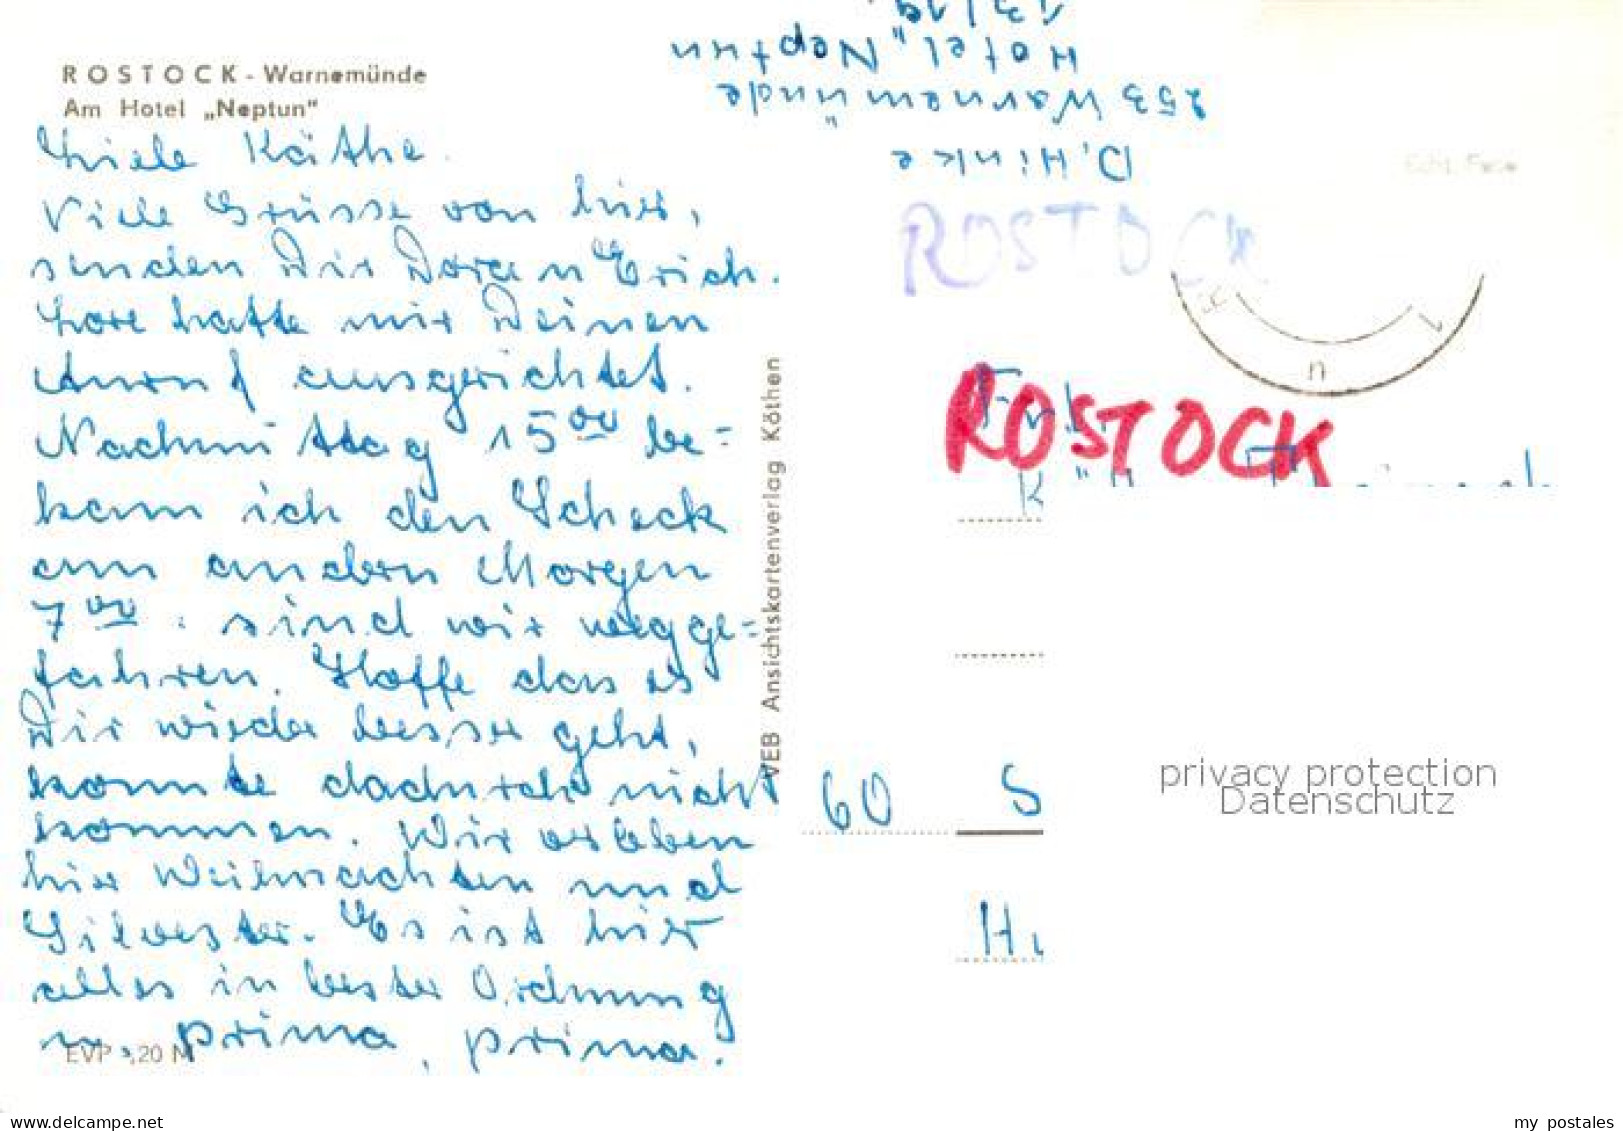 ROSTOCK - Warnemünde
Am Hotel „Neptun"
Liebe Käthe.
Viele Grüsse von hier,
senden Dir Dora u Erich.
Lore hatte mir Deinen
Anruf ausgerichtet.
Nachmittag 15⁰⁰ be=
kam ich den Scheck
am andern Morgen
7⁰⁰. sind wir wegge=
fahren. Hoffe das es
Dir wieder besser geht,
konnte dadurch nicht
kommen. Wir erleben
hier Weihnachten und
Silvester. Es ist hier
alles in bester Ordnung
prima, prima.
EVP 0,20 M
VEB Ansichtskartenverlag Köthen
D. Hinke
253 Warnemünde
Hotel „Neptun
13/19
ROSTOCK
ROSTOCK
60 S
H
privacy protection
Datenschutz
delcampe.net
my_postales